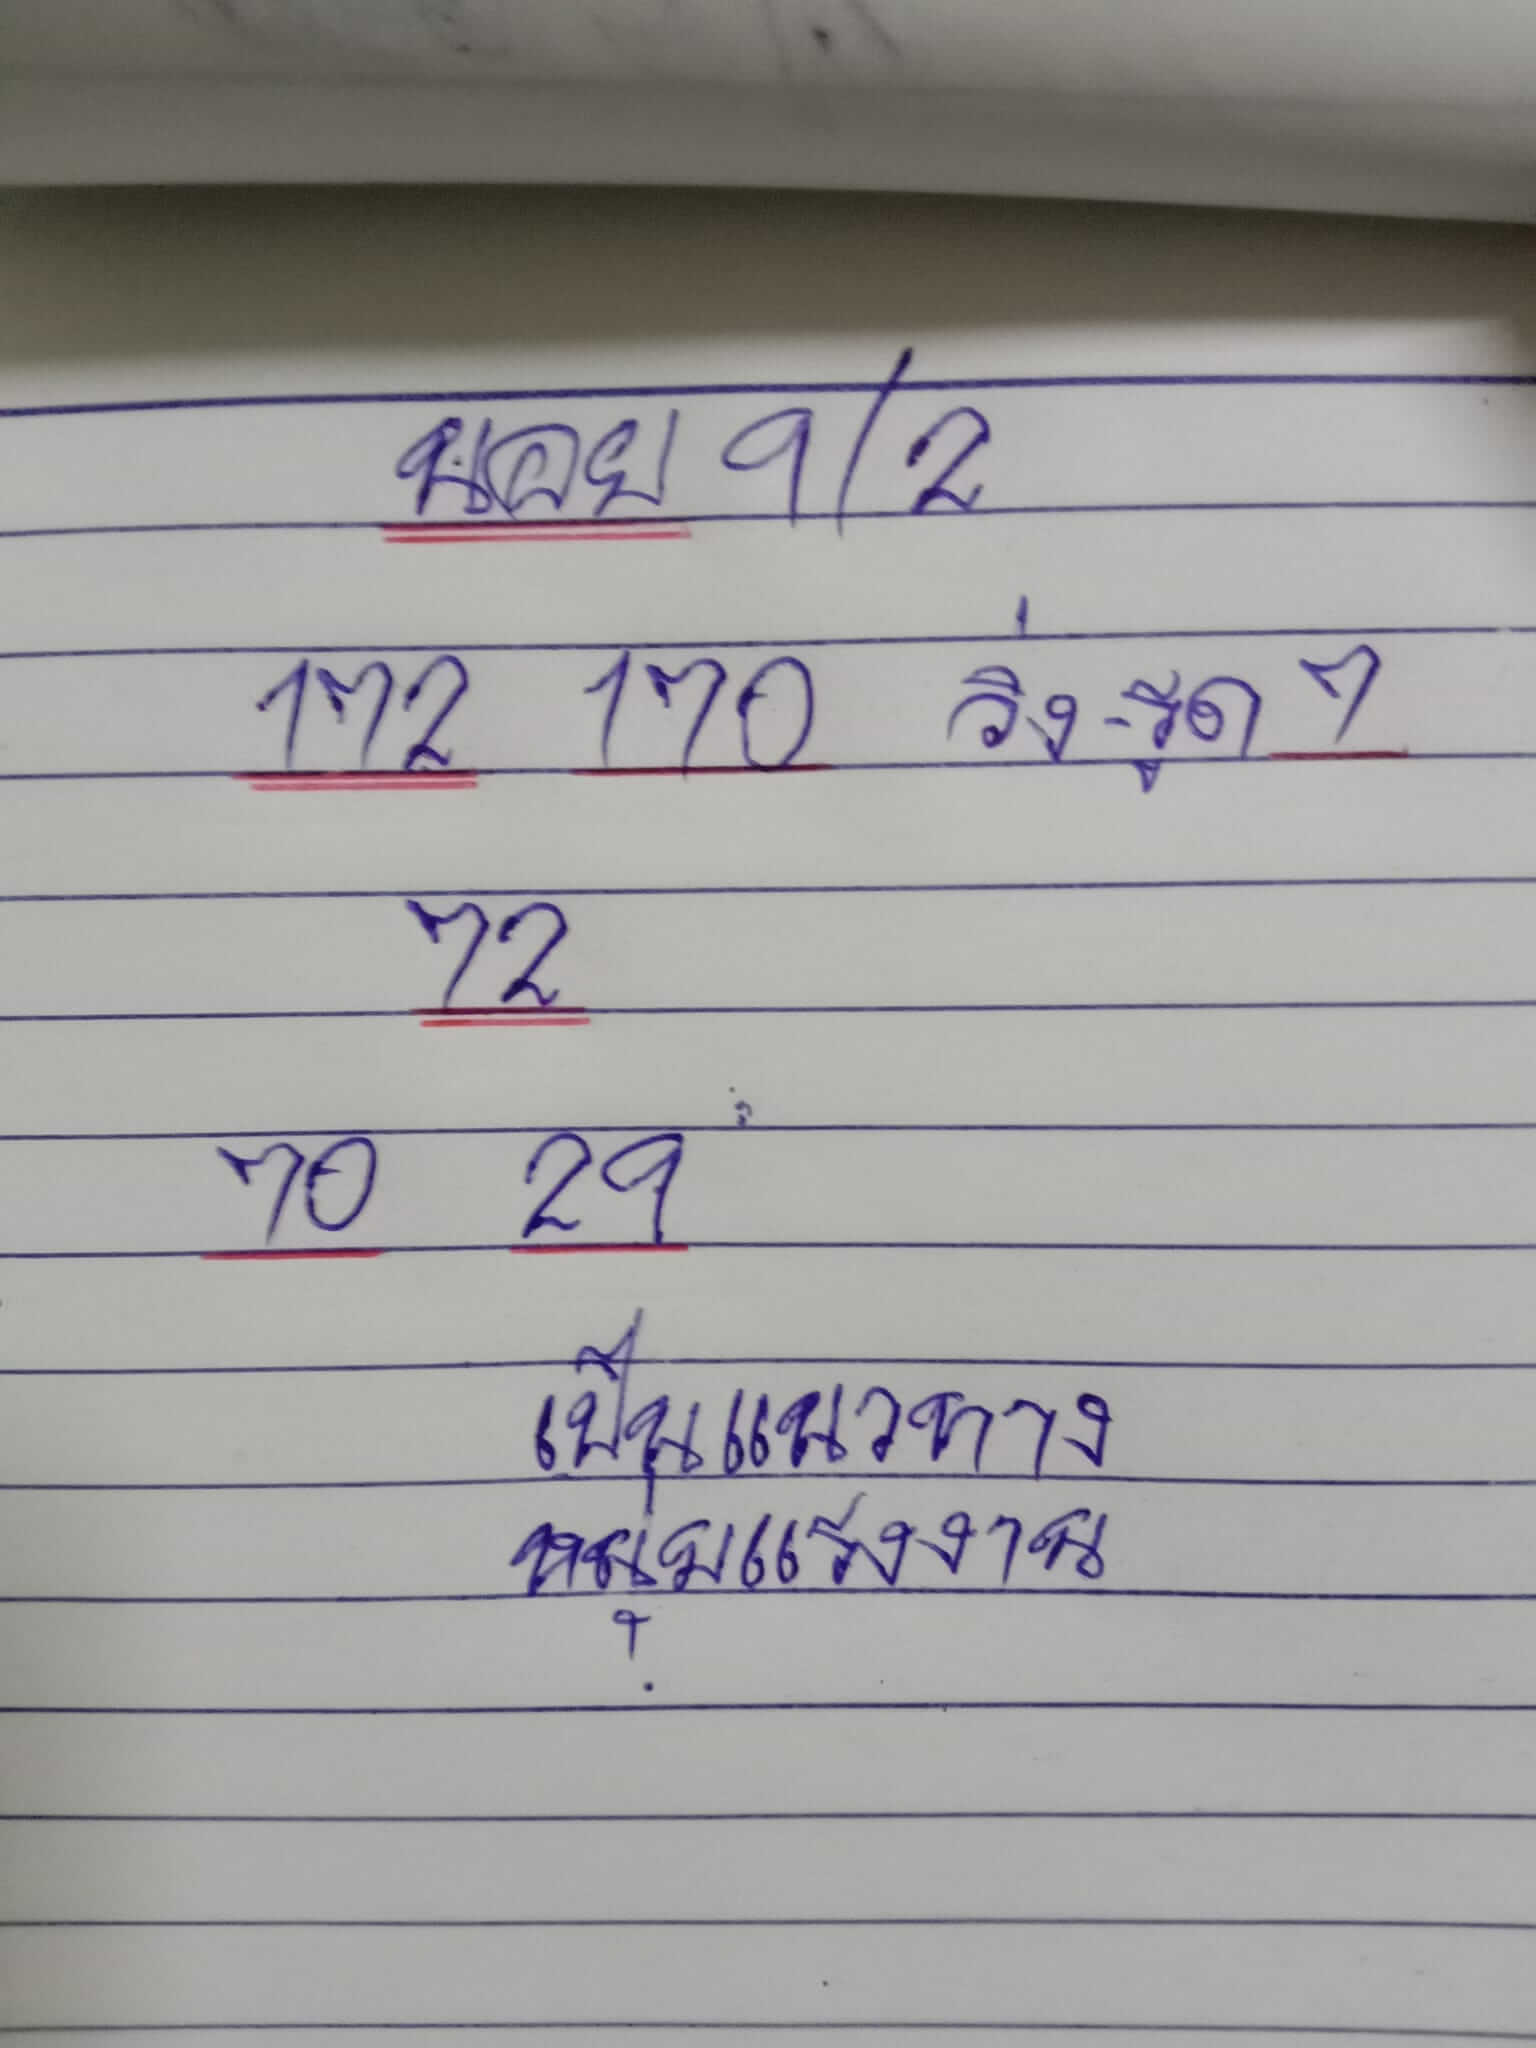 นอย 9/2
172 170 วิ่ง-รูด 7
72
70 29
เป็นแนวทาง
หนุ่มแรงงาน